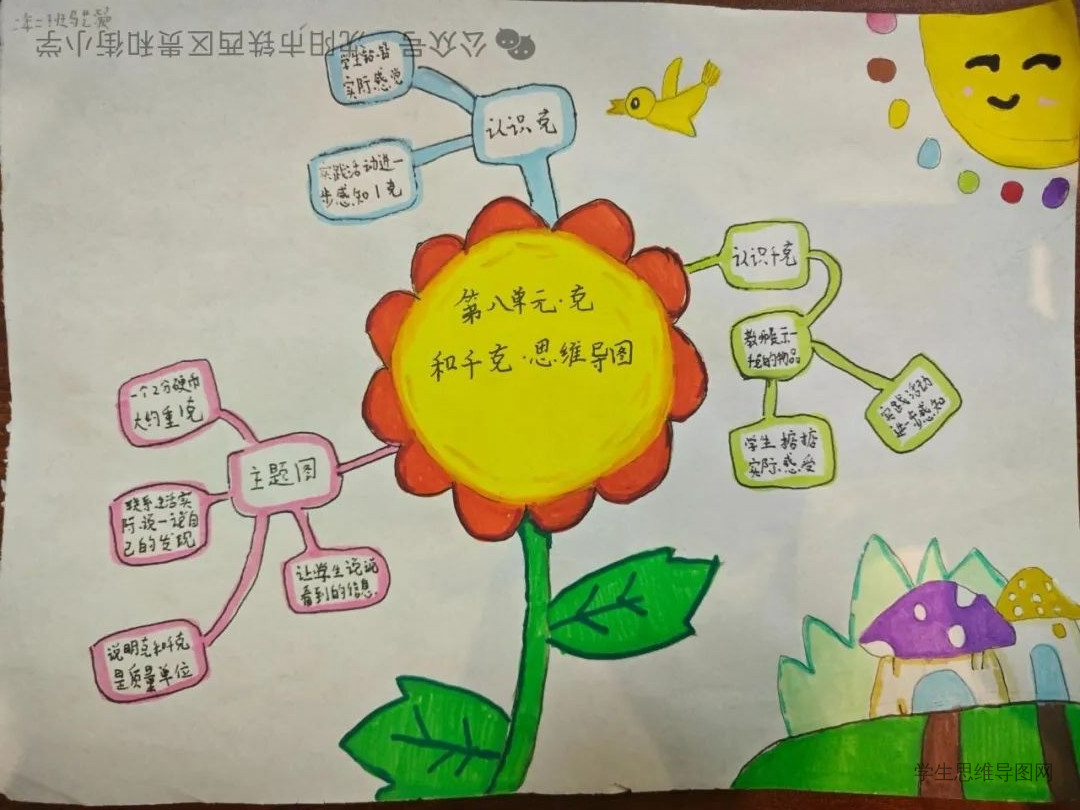 年二班
公众号 沈阳市铁西区贵和街小学
学生掂掂
实际感觉
认识克
实践活动进一
步感知1克
第八单元·克
和千克·思维导图
认识千克
教师展示一
千克的物品
实践活动
进一步感知
学生掂掂
实际感受
一个2分硬币
大约重1克
主题图
联系生活实
际,说一说自
己的发现
让学生说说
看到的信息
说明克和千克
是质量单位
学生思维导图网